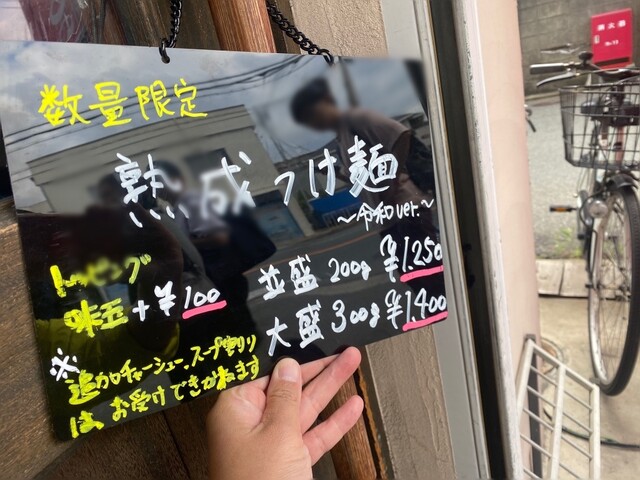 数量限定
熟成つけ麺
～令和ver.～
トッピング
味玉+¥100
並盛 200g ¥1.250
大盛 300g ¥1.400
※
追加チャーシュー、スープ割り
は お受けできかねます
消火器